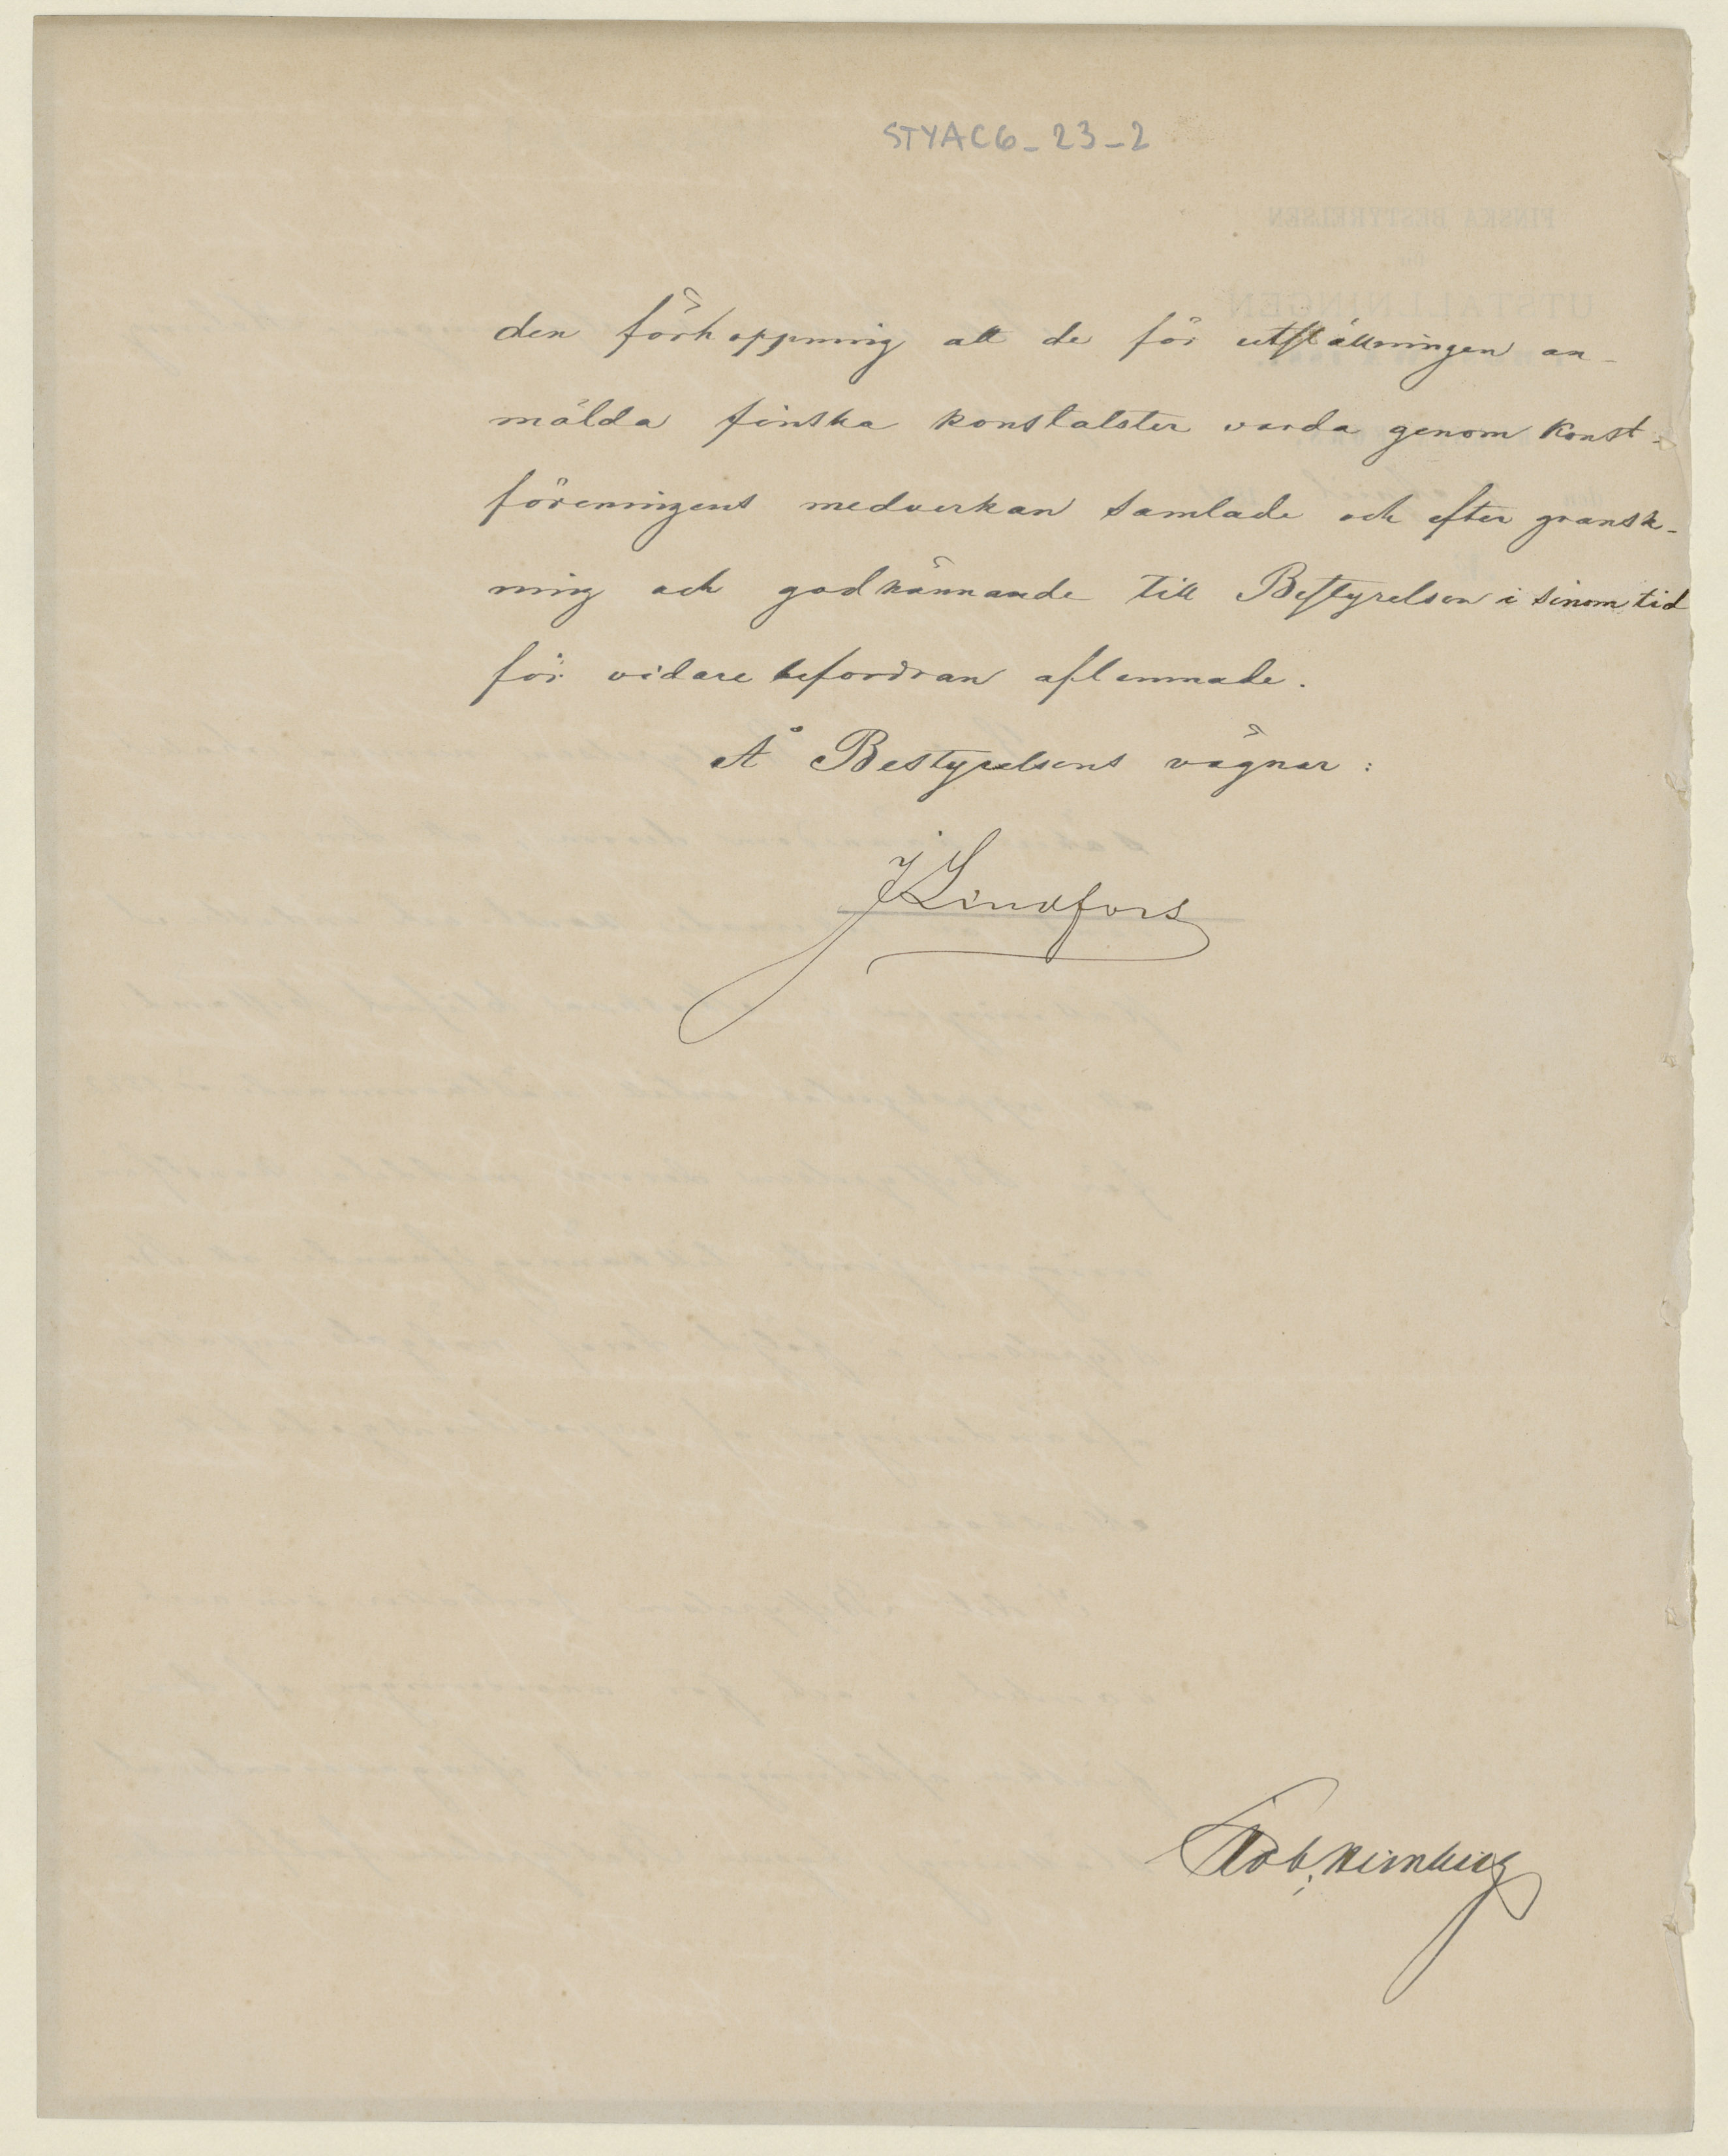 STYAC6_23_2
den förhoppning att de för utställningen an-
mälda finska konstalster varda genom Konst-
föreningens medverkan samlade och efter gransk-
ning och godkännande till Bestyrelsen i sinom tid
för vidare befordran aflemnade.
Å Bestyrelsens vägnar:
J Lindfors
Rob.